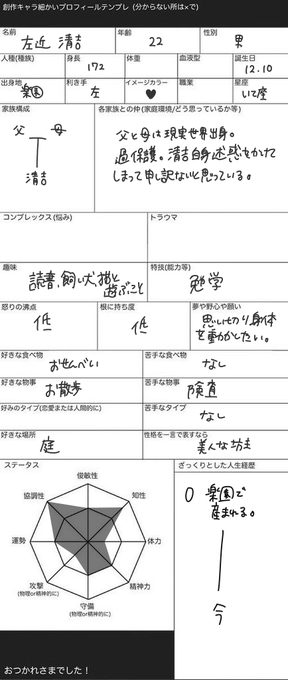 創作キャラ細かいプロフィールテンプレ (分からない所は×で)
名前
左近 清吉
年齢
22
性別
男
人種(種族)
身長
172
体重
血液型
誕生日
12.10
出身地
楽園
利き手
左
イメージカラー
♥
職業
星座
いて座
家族構成
父 母
清吉
各家族との仲 (家庭環境/どう思っているか等)
父と母は現実世界出身。
過保護。清吉自身迷惑をかけて
しまって申し訳ないと思っている。
コンプレックス(悩み)
トラウマ
趣味
読書、飼い犬、猫と
遊ぶこと
特技(能力等)
勉学
怒りの沸点
低
根に持ち度
低
夢や野心や願い
思いっ切り身体
を動かしたい。
好きな食べ物
おせんべい
苦手な食べ物
なし
好きな物事
お散歩
苦手な物事
検査
好みのタイプ(恋愛または人間的に)
苦手なタイプ
なし
好きな場所
庭
性格を一言で表すなら
美人な坊主
ステータス
俊敏性
協調性
知性
運勢
体力
攻撃
(物理or精神的に)
精神力
守備
(物理or精神的に)
ざっくりとした人生経歴
0 楽園で
産まれる。
今
おつかれさまでした！